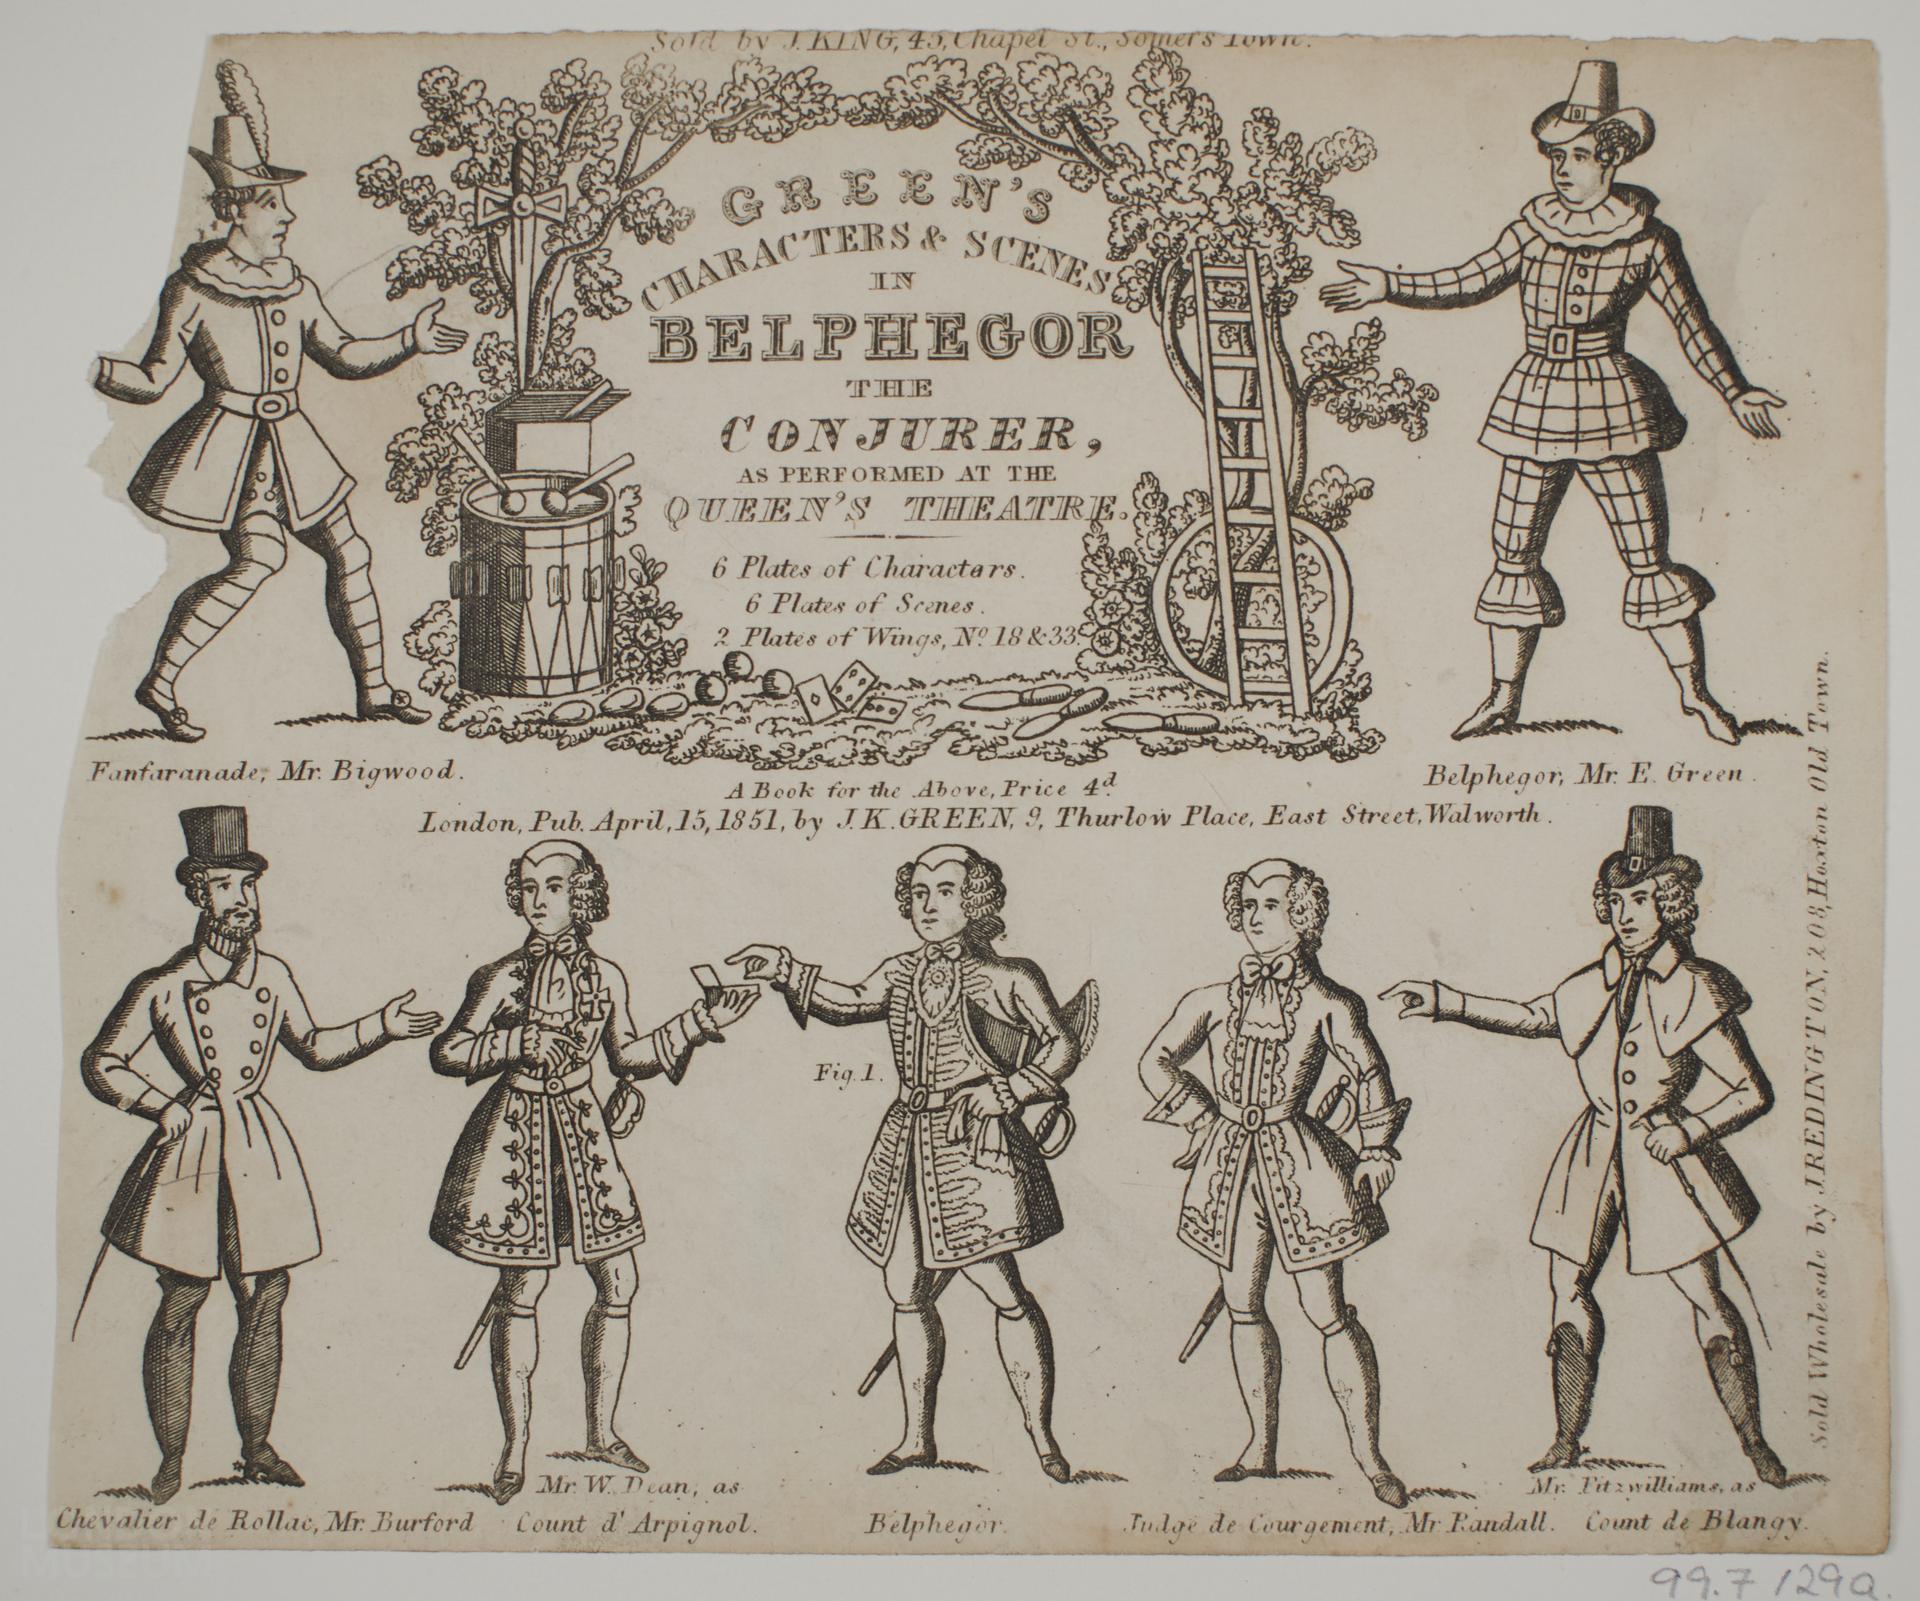 Sold by J. KING, 45, Chapel St., Somers Town.
GREEN'S
CHARACTERS & SCENES
IN
BELPHEGOR
THE
CONJURER,
AS PERFORMED AT THE
QUEEN'S THEATRE.
6 Plates of Characters.
6 Plates of Scenes.
2 Plates of Wings, No. 18 & 33.
Fanfaranade, Mr. Bigwood.
Belphegor, Mr. E. Green.
A Book for the Above, Price 4d
London, Pub. April, 15, 1851, by J.K. GREEN, 9, Thurlow Place, East Street, Walworth.
Sold Wholesale by J. REDINGTON, 208, Hoxton Old Town.
Fig. 1.
Chevalier de Rollac, Mr. Burford
Mr. W. Dean, as
Count d'Arpignol.
Belphegor.
Judge de Courgement, Mr. Randall.
Mr. Fitzwilliams, as
Count de Blangy.
MUSEUM
99.7/29a.